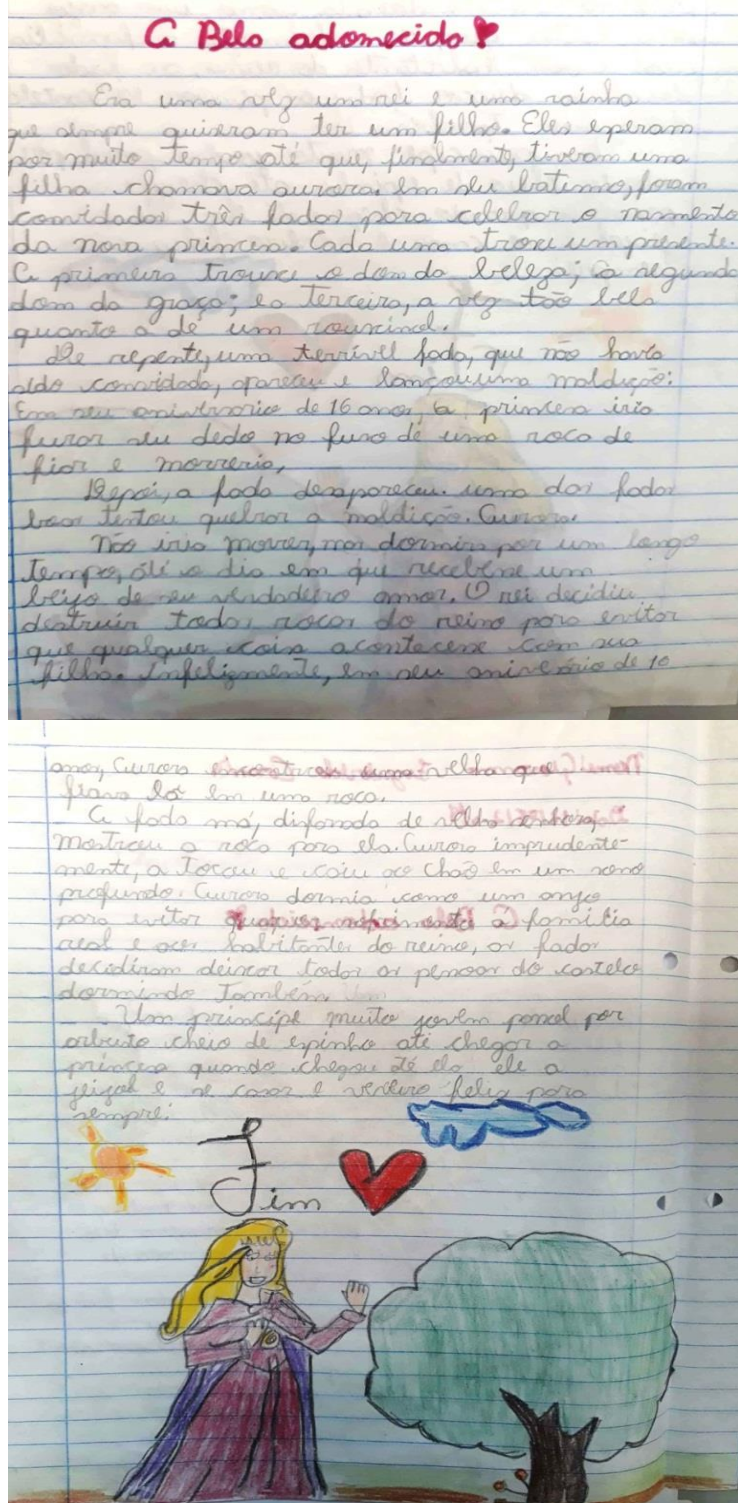 A Bela adomecida
Era uma vez um rei e uma rainha
que sempre quiseram ter um filho. Eles esperam
por muito tempo até que, finalmente, tiveram uma
filha chamava aurora, em seu batismo, foram
convidadas três fadas para celebrar o nascimento
da nova princesa. Cada uma trouxe um presente.
A primeira trouxe o dom da beleza; a segunda
dom da graça; e a terceira, a voz tão bela
quanto a de um rouxinol.
De repente, uma terrível fada, que não havia
sido convidada, apareceu e lançou uma maldição:
Em seu aniversario de 16 anos, a princesa iria
furar seu dedo no fuso de uma roca de
fiar e morreria,
Depois, a fada desapareceu. uma das fadas
boas tentou quebrar a maldição. Aurora.
Não iria morrer, mas dormira por um longo
tempo, até o dia em que recebesse um
beijo de seu verdadeiro amor. O rei decidiu
destruir todas rocas do reino para evitar
que qualquer coisa acontecesse com sua
filha. Infelizmente, em seu aniversário de 16
anos, Aurora encontrou uma velha que
fiava lá em uma roca.
A fada má, disfarsada de velha senhora,
mostrou a roca para ela. Aurora imprudente-
mente, a tocou e caiu ao chão em um sono
profundo. Aurora dormia como um anjo
para evitar qualquer sofrimento a familia
real e aos habitantes do reino, as fadas
decidiram deixar todas as pessoas do castelo
dormindo também.
Um principe muito jovem passol por
arbusto cheio de espinho até chegar a
princesa quando chegou té ela ele a
e se casar e feliz para
sempre.
Fim